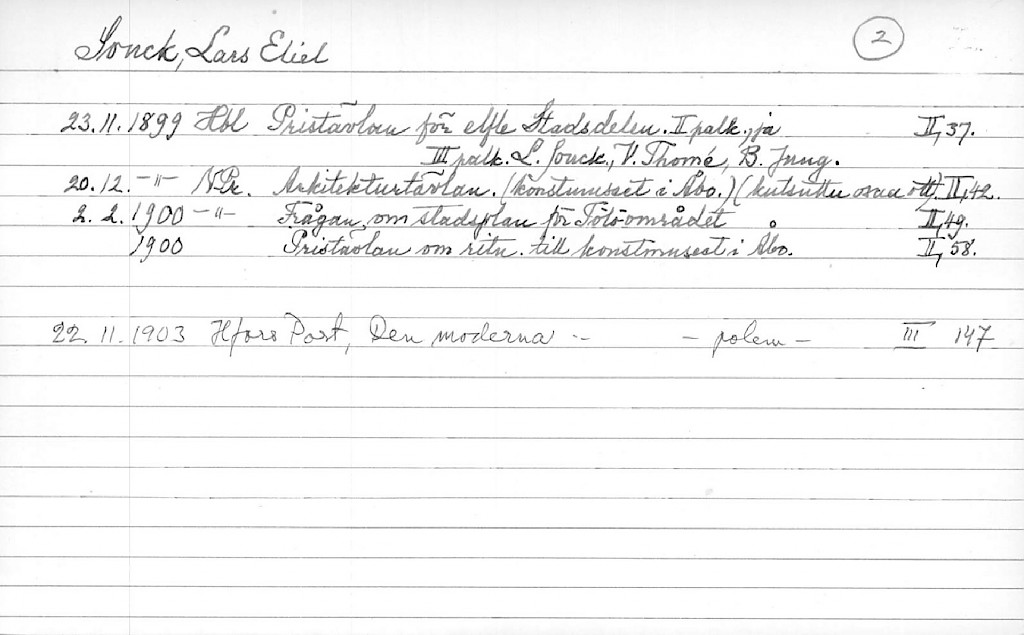 Sonck, Lars Eliel 2
23.11.1899 Hbl Pristävlan för elfte Stadsdelen. II palk. ja II, 37.
III palk. L. Sonck, V. Thomé, B. Jung.
20.12. -"- N.Pr. Arkitekturtävlan. (Konstmuseet i Åbo.) (kutsuttu osaa ott). II, 42.
2. 2. 1900 -"- Frågan om stadsplan för Tölö-området II, 49.
1900 Pristävlan om ritn. till konstmuseet i Åbo. II, 58.
22. 11. 1903 Hfors Post, Den moderna -- - polem - III 147